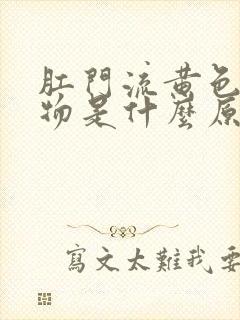 肛門流黃色
物是什麼原
寫文太難我要